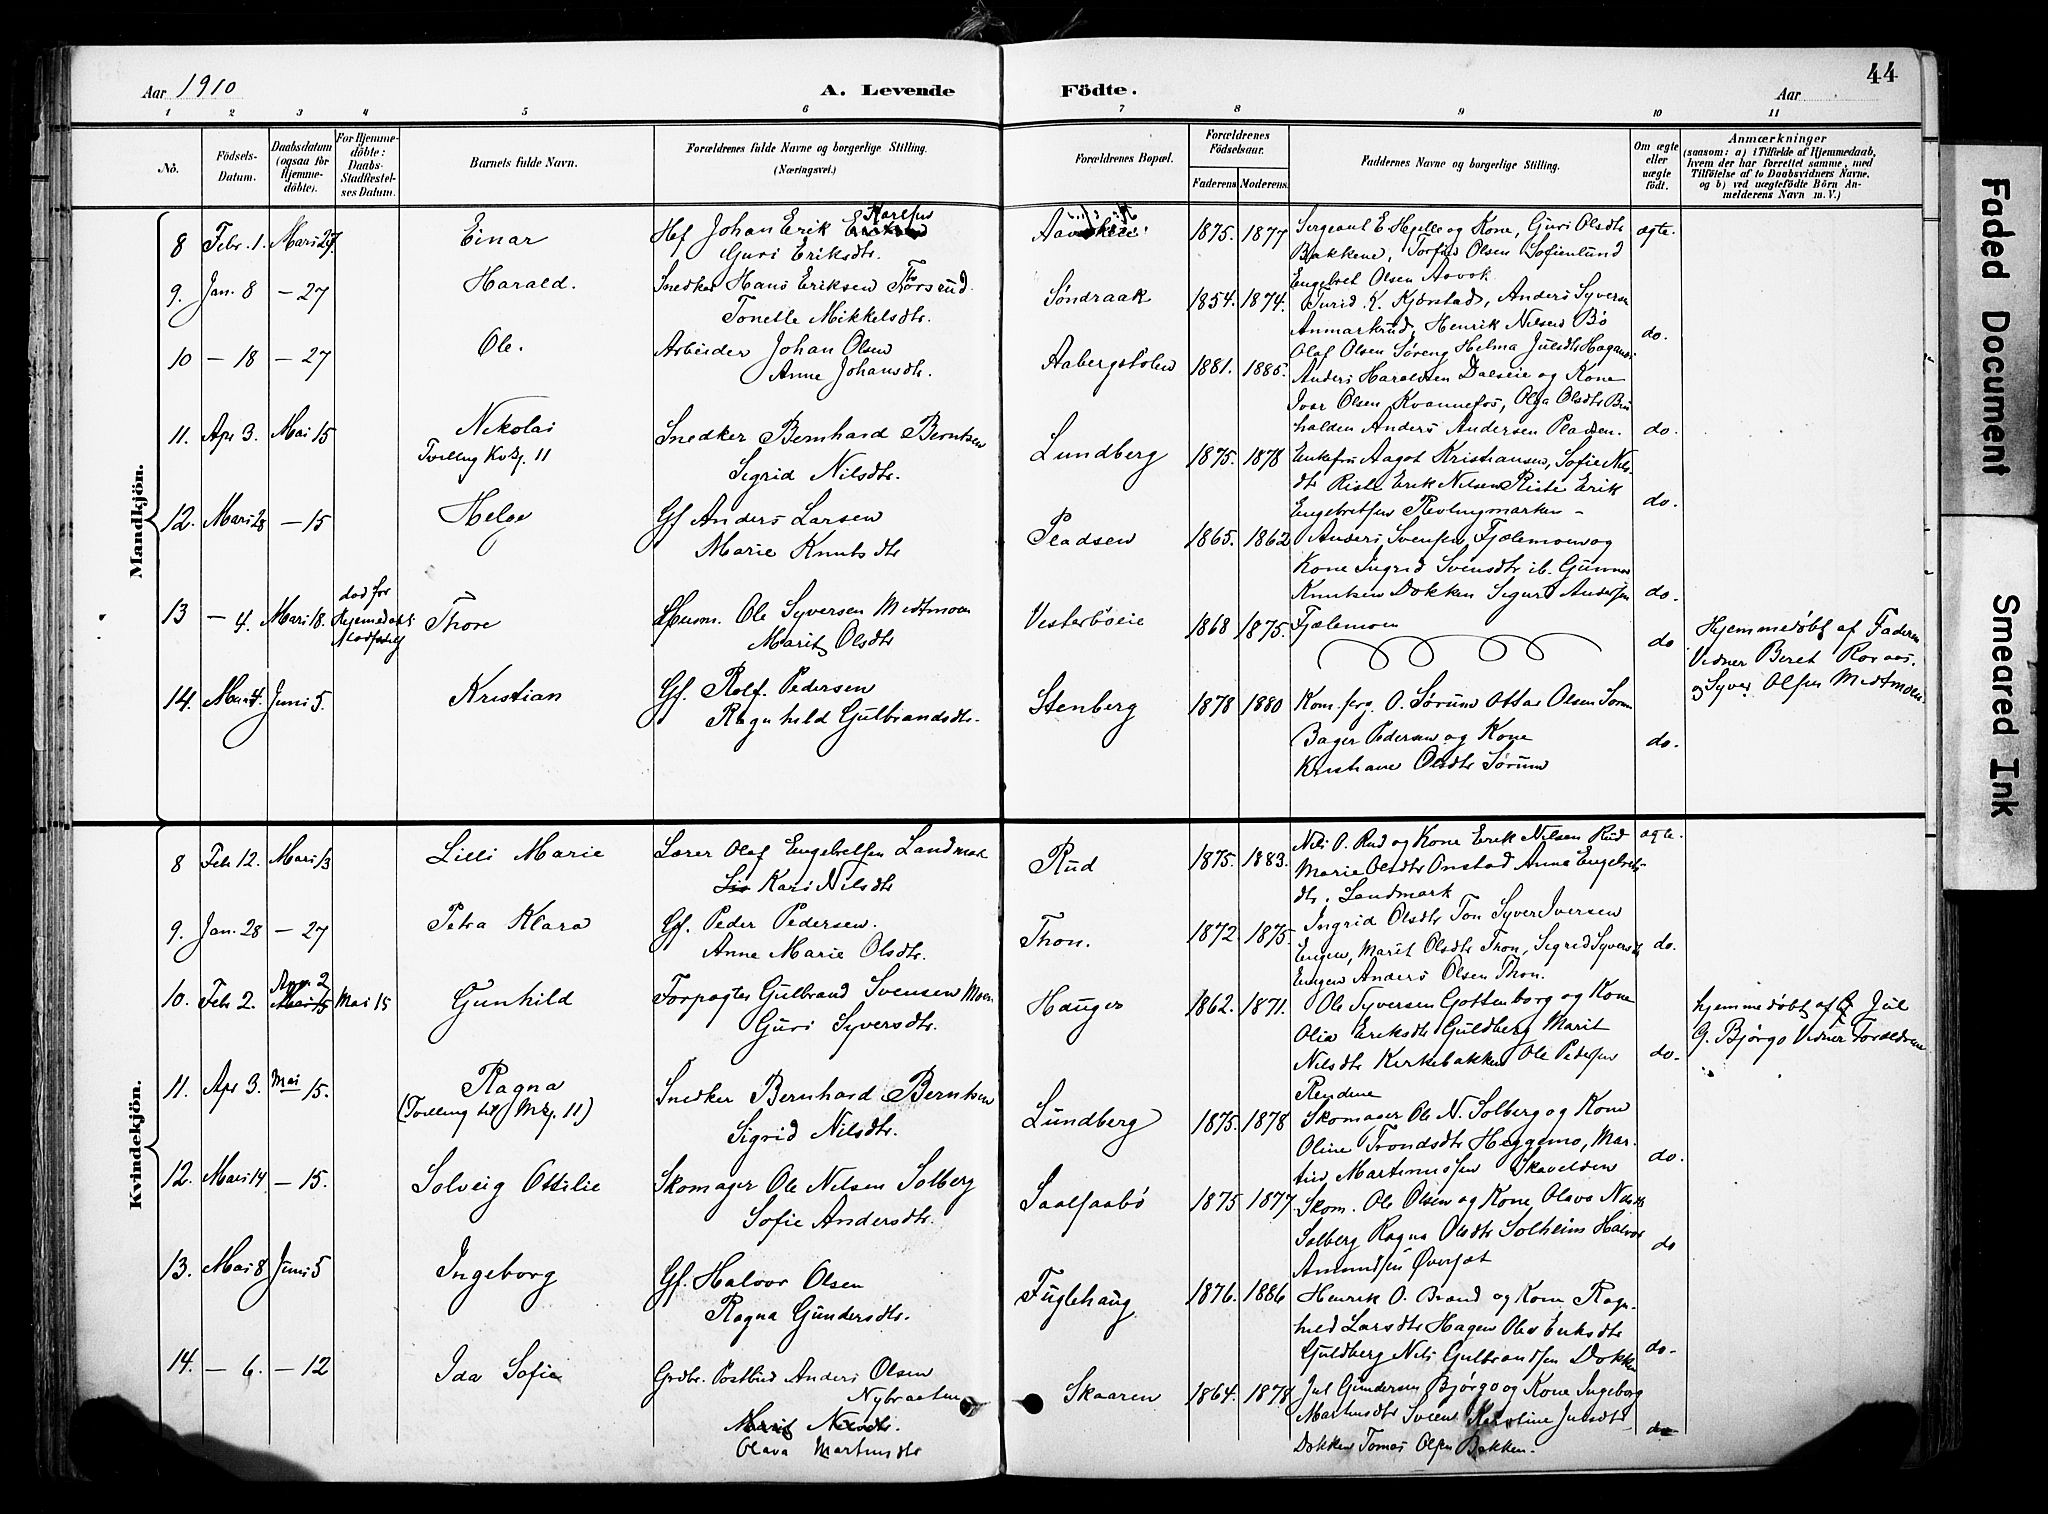 Aar 1910
A. Levende Födte.
44
Aar
1 2 3 4 5 6 7 8 9 10 11
No.
Födsels-Datum.
Daabsdatum (ogsaa for Hjemme-döbte).
For Hjemme-döbte: Daabs-Stadfæstel-ses Datum.
Barnets fulde Navn.
Forældrenes fulde Navne og borgerlige Stilling.
(Næringsvei.)
Forældrenes Bopæl.
Forældrenes Födselsaar.
Faderens Moderens
Faddernes Navne og borgerlige Stilling.
Om ægte eller uægte födt.
Anmærkninger
(saasom: a) i Tilfælde af Hjemmedaab, hvem der har forrettet samme, med Tilföielse af to Daabsvidners Navne, og b) ved uægtefödte Börn An-melderens Navn m. V.)
Mandkjön.
8 Febr. 1. Mars 27 Einar Hef Johan Erik Karlsen
Guri Eriksdtr.
1875. 1877 Sergeant E Hjelle og Kone, Guri Olsdtr
Bakkene, Torfin Olsen Sofienlund
Engebret Olsen Aavok
ægte.
9. Jan. 8 – 27 Harald. Snedker Hans Eriksen Thorsrud.
Tonette Mikkelsdtr.
Søndraak 1854. 1874. Turid K. Kjærstad, Anders Syversen
Anmarkrud, Henrik Nilsen Bö
Olaf Olsen Søreng Helma Julsdtr
do.
10 – 18 – 27 Ole. Arbeider Johan Olsen
Anne Johansdtr.
Aabergstolen 1881. 1885. Anders Haraldsen Dalseie og Kone
Ivar Olsen Kvannefos, Olga Olsdtr Bru
halden Anders Andersen Pladsen.
do.
11. Apr 3. Mai 15 Nikolai
Tvilling Kvkj. 11
Snedker Bernhard Berntsen
Sigrid Nilsdtr.
Lundberg 1875. 1878 Enkefru Aagot Kristiansen, Sofie Nils
dtr Riste Erik Nilsen Riste Erik
Engebretsen Revlingmarken –
do.
12. Mars 28 – 15 Helge Gf Anders Larsen
Marie Knutsdtr
Pladsen 1865. 1862 Anders Svensen Fjælemoen og
Kone Ingrid Svensdtr ib. Gunnar
Knutsen Dokken Sigurd Andersen
Fjælemoen
do.
13 – 4. Mars 18. Thore Husm. Ole Syversen Midtmoen
Marit Olsdtr
Vesterbøeie 1868 1875. do
Hjemmedøbt af Faderen
Vidner Beret Roraas.
og Syver Olsen Midtmoen.
14. Mars 4. Juni 5. Kristian Gf. Rolf Pedersen
Ragnhild Gulbrandsdtr.
Stenberg 1878 1880 O. Sørum Ottar Olsen Sørum
Bager Pedersen og Kone
Kristiane Olsdtr Sørum
do.
Kvindekjön.
8 Feb. 12. Mars 13 Lilli Marie Lærer Olaf Engebretsen Landmark
Kari Nilsdtr
Rud 1875. 1883. Nils O. Rud og Kone Erik Nilsen Rud
Marie Olsdtr Onstad Anna Engebrets
dtr. Landmark
ægte.
9. Jan. 28 – 27 Petra Klara Gf. Peder Pedersen.
Anne Marie Olsdtr.
Thon. 1872 1875. Ingrid Olsdtr Ton Syver Iversen
Engen, Marit Olsdtr Thon, Sigrid Syversdtr
Engen Anders Olsen Thon.
do.
10. Feb 2. Apr 2 Mai 15 Mai 15 Gunhild Forpagter Gulbrand Svensen Moen
Guri Syversdtr.
Hauger 1862. 1871. Ole Syversen Gottenborg og Kone
Olia Eriksdtr Guldberg Marit
Nilsdtr Kirkebakken Ole Pedersen
Rendene
do.
hjemmedøbt af Jul
G. Bjørgo Vidner Forældrene
11. Apr 3. Mai 15. Ragna
(Tvilling til Mkj. 11)
Snedker Bernhard Berntsen
Sigrid Nilsdtr.
Lundberg 1875. 1878 Skomager Ole N. Solberg og Kone
Oline Trondsdtr Heggemo, Mar-
tin Martinussen Skavelden
do.
12. Mars 14 – 15. Solveig Ottilie Skomager Ole Nilsen Solberg
Sofie Andersdtr.
Saalsaabø 1875 1877. Skom. Ole Olsen og Kone Olava Nilsdtr
Solberg Ragna Olsdtr Solheim Halvor
Amundsen Øversæt
do
13. Mai 8 Juni 5 Ingeborg Gf. Halvor Olsen
Ragna Gundersdtr.
Fuglehaug 1876. 1886 Henrik O. Brænd og Kone Ragn-
hild Larsdtr Hagen Olea Eriksdtr
Guldberg Nils Gulbrandsen Dokken
do.
14. – 6. – 12 Ida Sofie Grdbr. Postbud Anders Olsen
Nybraaten
Marit Nilsdtr.
Olava Martinsdtr
Skaaren 1864. 1878 Jul Gundersen Bjørgo og Kone Ingeborg
Martinsdtr Svens Karoline Julsdtr
Dokken Tomas Olsen Bakken.
do
Faded Document
Smeared Ink